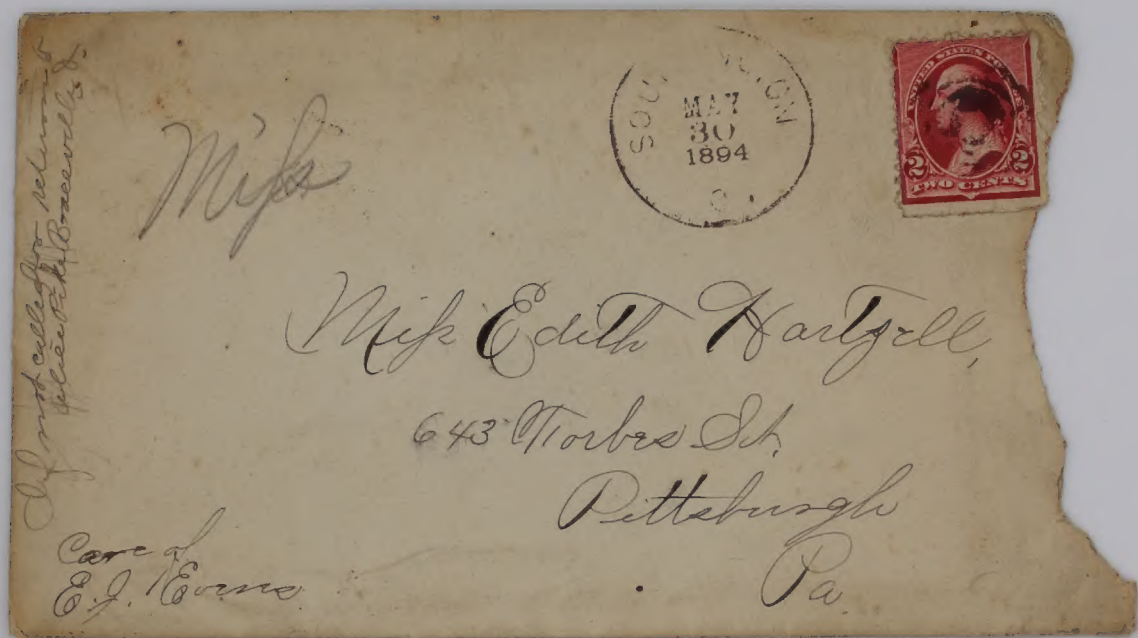 If not called for return to
Braceville O.
Miss
MAY
30
1894
O.
UNITED STATES POSTAGE
2 2
TWO CENTS
Miss Edith Hartzell,
643 Forbes St,
Pittsburgh
Pa.
Care of
E. J. Evans